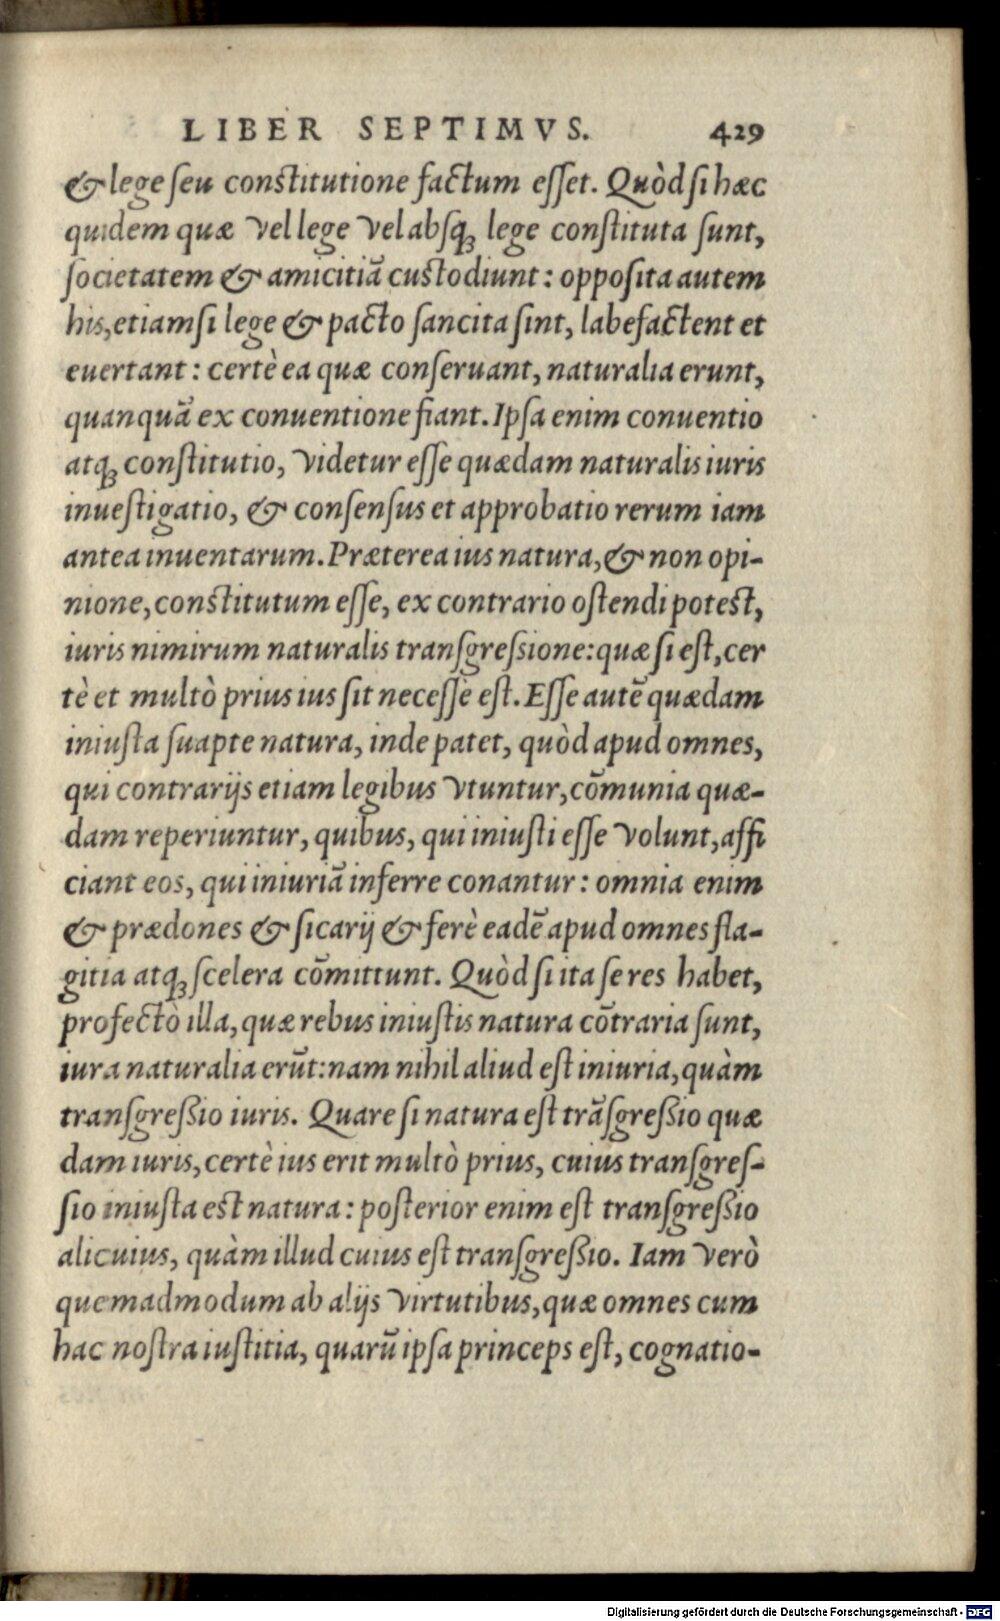 LIBER SEPTIMVS. 429
& lege seu constitutione factum esset. Quòd si hæc
quidem quæ vel lege vel absq; lege constituta sunt,
societatem & amicitiã custodiunt: opposita autem
his, etiamsi lege & pacto sancita sint, labefactent et
euertant: certè ea quæ conseruant, naturalia erunt,
quanquã ex conuentione fiant. Ipsa enim conuentio
atq; constitutio, videtur esse quædam naturalis iuris
inuestigatio, & consensus et approbatio rerum iam
antea inuentarum. Præterea ius natura, & non opi-
nione, constitutum esse, ex contrario ostendi potest,
iuris nimirum naturalis transgressione: quæ si est, cer
tè et multò prius ius sit necesse est. Esse autẽ quædam
iniusta suapte natura, inde patet, quòd apud omnes,
qui contrarijs etiam legibus vtuntur, cõmunia quæ-
dam reperiuntur, quibus, qui iniusti esse volunt, affi
ciant eos, qui iniuriã inferre conantur: omnia enim
& prædones & sicarij & ferè eadẽ apud omnes fla-
gitia atq; scelera cõmittunt. Quòd si ita se res habet,
profectò illa, quæ rebus iniustis natura cõtraria sunt,
iura naturalia erũt: nam nihil aliud est iniuria, quàm
transgreßio iuris. Quare si natura est trãsgreßio quæ
dam iuris, certè ius erit multò prius, cuius transgres-
sio iniusta est natura: posterior enim est transgreßio
alicuius, quàm illud cuius est transgreßio. Iam verò
quemadmodum ab alijs virtutibus, quæ omnes cum
hac nostra iustitia, quarũ ipsa princeps est, cognatio-
Digitalisierung gefördert durch die Deutsche Forschungsgemeinschaft - DFG